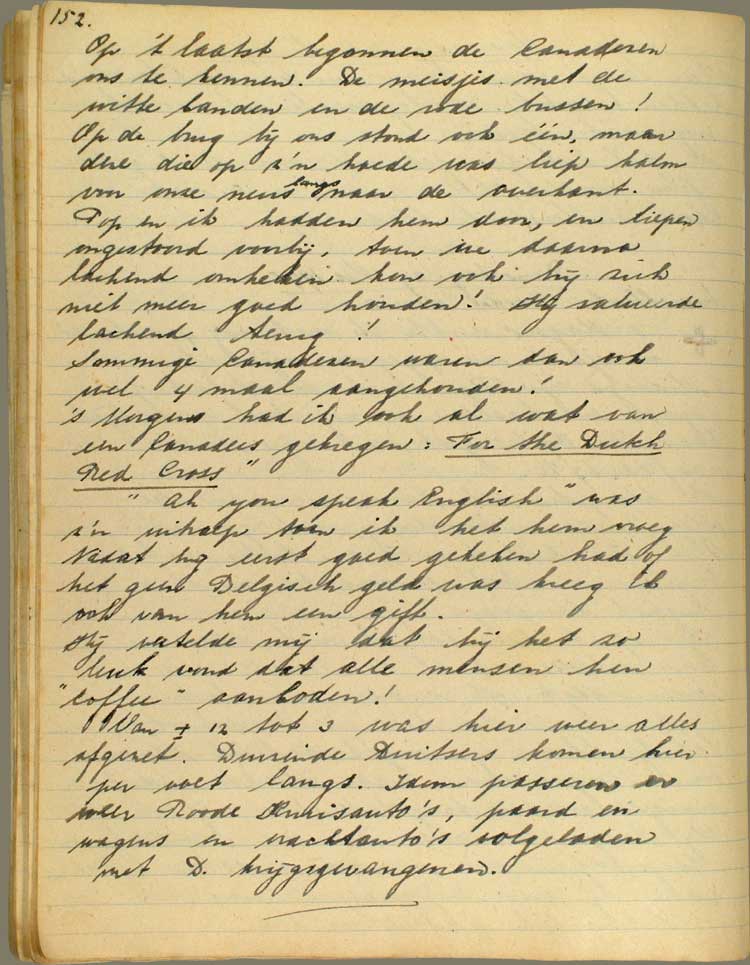 152.
Op 't laatst begonnen de Canadezen
ons te kennen. De meisjes met de
witte banden en de rode bussen!
Op de brug bij ons stond ook één, maar
deze die op z'n hoede was liep kalm
voor onze neus langs naar de overkant.
Pop en ik hadden hem door, en liepen
ongestoord voorbij. toen we daarna
lachend omkeken kon ook hij zich
niet meer goed houden! Hij salueerde
lachend terug!
Sommige Canadezen waren dan ook
wel 4 maal aangehouden!
's Morgens had ik ook al wat van
een Canadees gekregen: For the Dutch
Red Cross"
" Ah you speak English" was
z'n uitroep toen ik het hem vroeg
Nadat hij eerst goed gekeken had of
het geen Belgisch geld was kreeg ik
ook van hem een gift.
Hij vertelde mij dat hij het zo
leuk vond dat alle mensen hem
"coffee" aanboden!
Van ± 12 tot 3 was hier weer alles
afgezet. Duizende Duitsers komen hier
per voet langs. Idem passeren er
weer Roode Kruisauto's, paard en
wagens en vrachtauto's volgeladen
met D. krijgsgevangenen.